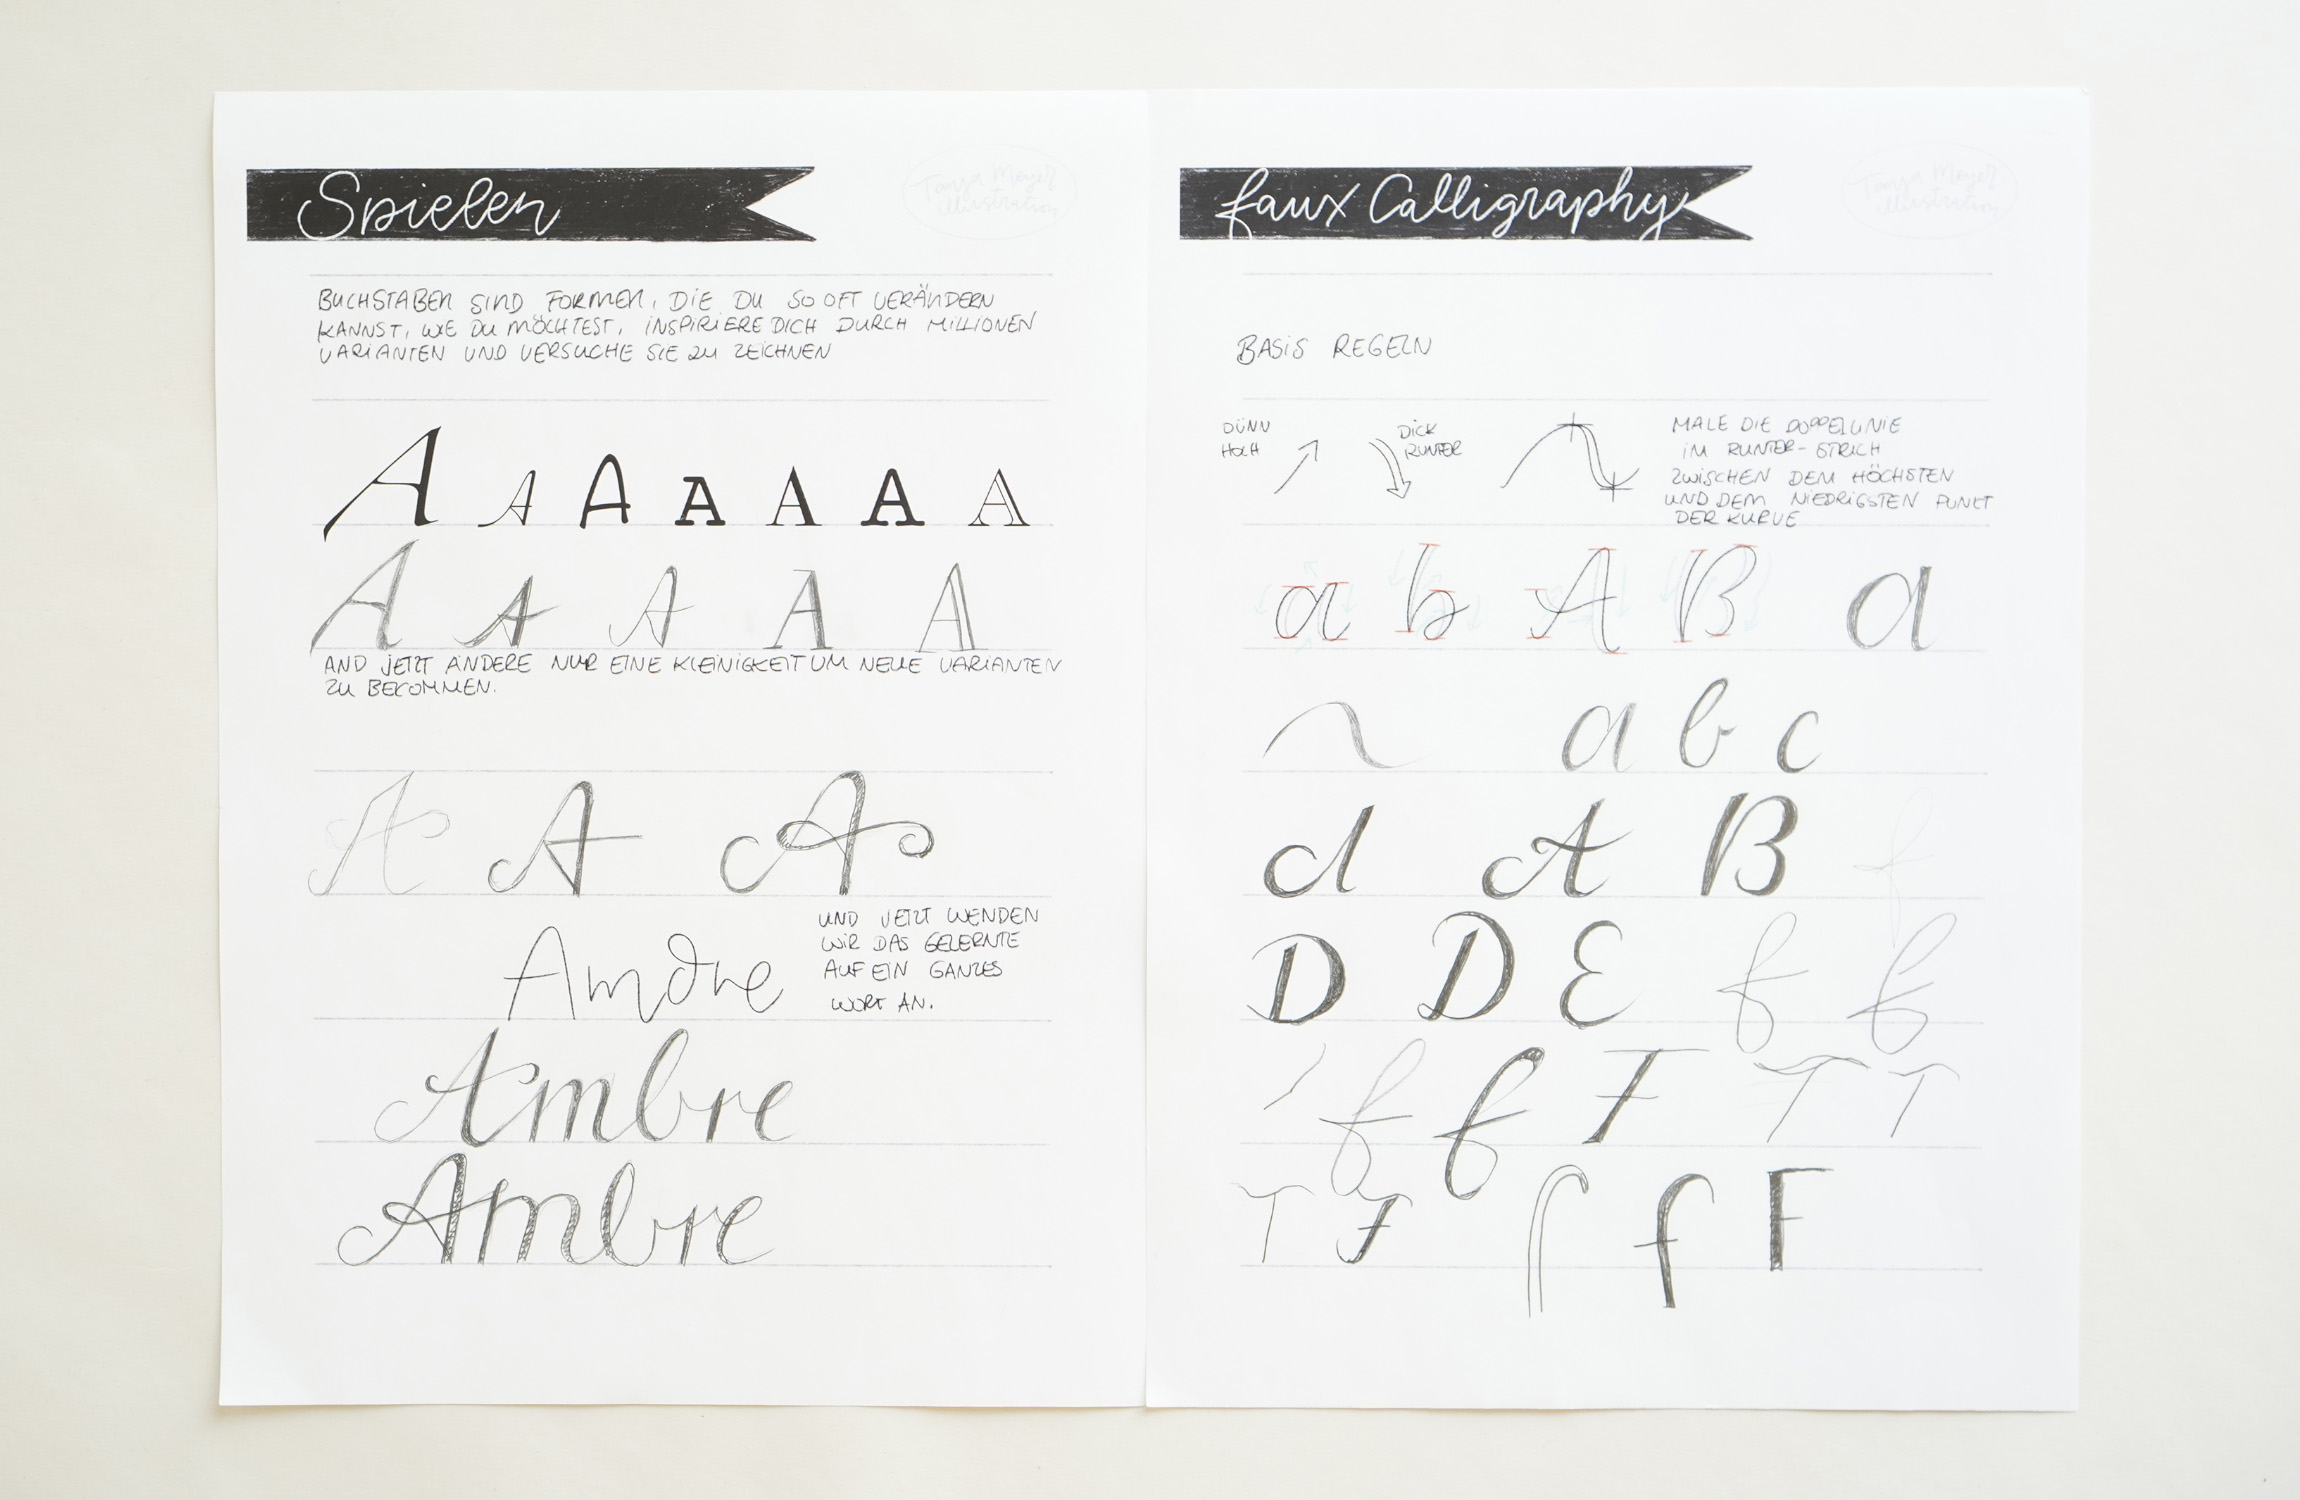 Spielen
Tanja Meyer
illustration
BUCHSTABEN SIND FORMEN, DIE DU SO OFT VERÄNDERN
KANNST, WIE DU MÖCHTEST, INSPIRIERE DICH DURCH MILLIONEN
VARIANTEN UND VERSUCHE SIE ZU ZEICHNEN
A A A A A A A
A A A A A
AND JETZT ÄNDERE NUR EINE KLEINIGKEIT UM NEUE VARIANTEN
ZU BECOMMEN.
A A A
UND JETZT WENDEN
WIR DAS GELERNTE
AUF EIN GANZES
WORT AN.
Ambre
Ambre
faux Calligraphy
Tanja Meyer
illustration
BASIS REGELN
DÜNN
HOCH
DICK
RUNTER
MALE DIE DOPPELLINIE
IM RUNTER-STRICH
ZWISCHEN DEM HÖCHSTEN
UND DEM NIEDRIGSTEN PUNKT
DER KURVE
a b A B a
a b c
d A B f
D D E f f
f f F T T
T F f f F